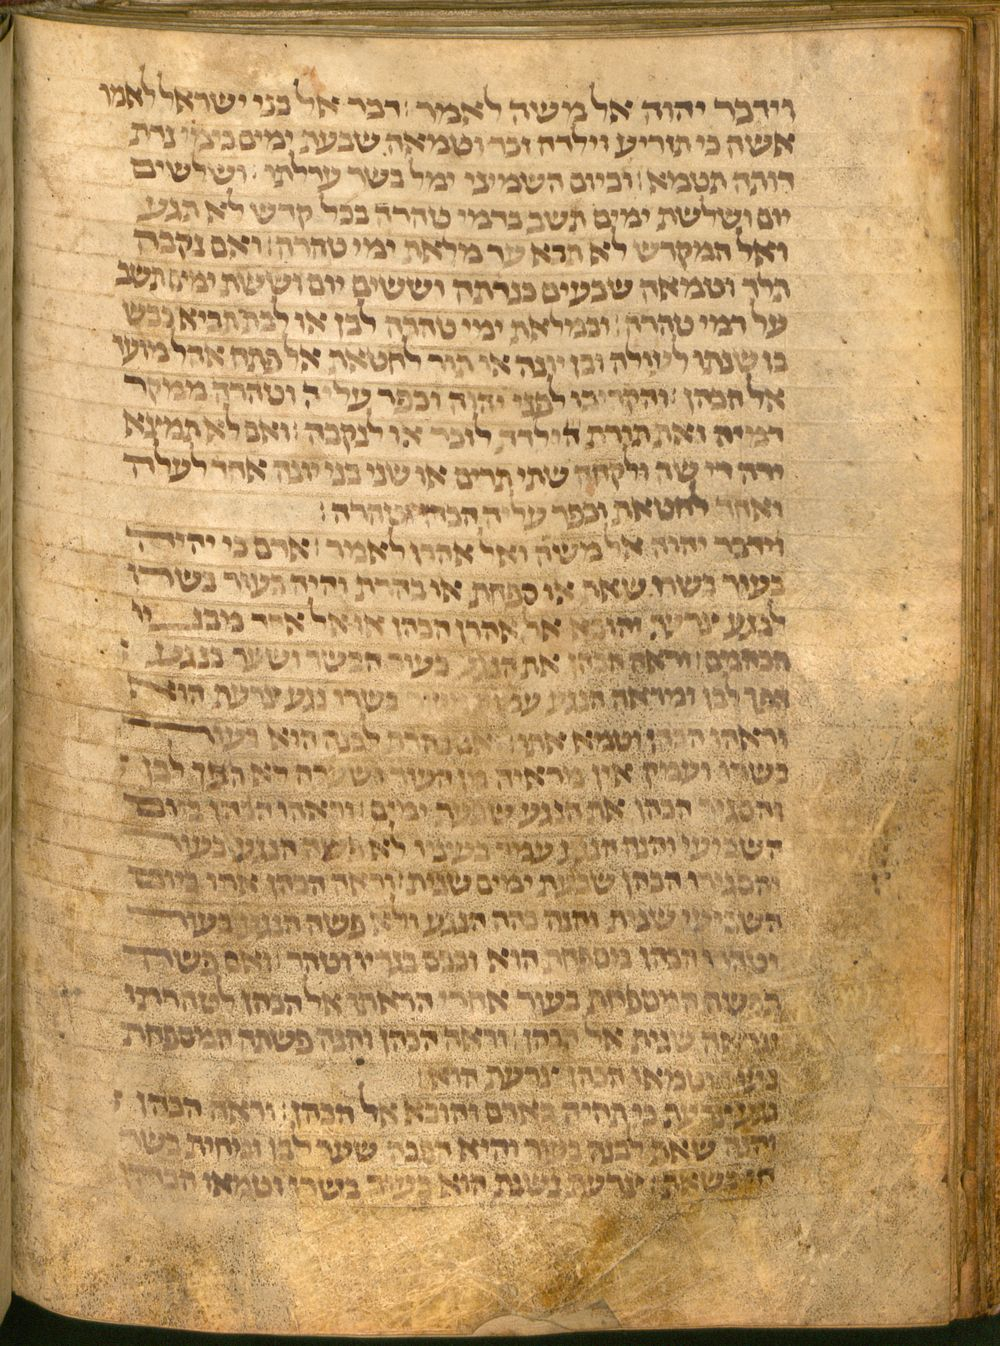 וידבר יהוה אל משה לאמר : דבר אל בני ישראל לאמו
אשה כי תזריע וילדה זכר וטמאה שבעת ימים כימי נדת
דותה תטמא : וביום השמיני ימל בשר ערלתו : ושלשים
יום ושלשת ימים תשב בדמי טהרה בכל קדש לא תגע
ואל המקדש לא תבא עד מלאת ימי טהרה : ואם נקבה
תלד וטמאה שבעים כנדתה וששים יום וששת ימים תשב
על דמי טהרה : ובמלאת ימי טהרה לבן או לבת תביא כבש
בן שנתו לעולה ובן יונה או תור לחטאת אל פתח אהל מועו
אל הכהן : והקריבו לפני יהוה וכפר עליה וטהרה ממקר
דמיה זאת תורת הילדת לזכר או לנקבה : ואם לא תמצא
ידה די שה ולקחה שתי תרים או שני בני יונה אחד לעלה
ואחד לחטאת וכפר עליה הכהן וטהרה :
וידבר יהוה אל משה ואל אהרן לאמר : אדם כי יהיה
בעור בשרו שאת או ספחת או בהרת והיה בעור בשרו
לנגע צרעת והובא אל אהרן הכהן או אל אחד מבניו
הכהנים : וראה הכהן את הנגע בעור הבשר ושער בנגע
הפך לבן ומראה הנגע עמק בשרו נגע צרעת הוא
וראהו הכהן וטמא אתו : ואם בהרת לבנה הוא בעור
בשרו ועמק אין מראיה מן העור ושערה לא הפך לבן
והסגיר הכהן את הנגע שבעת ימים : וראהו הכהן ביום
השביעי והנה הנגע עמד בעיניו לא פשה הנגע בעור
והסגירו הכהן שבעת ימים שנית : וראה הכהן אתו ביום
השביעי שנית והנה כהה הנגע ולא פשה הנגע בעור
וטהרו הכהן מספחת הוא וכבס בגדיו וטהר : ואם פשה
תפשה המספחת בעור אחרי הראתו אל הכהן לטהרתו
ונראה שנית אל הכהן : וראה הכהן והנה פשתה המספחת
וטמאו הכהן צרעת הוא :
נגע צרעת כי תהיה באדם והובא אל הכהן : וראה הכהן
והנה שאת לבנה בעור והיא הפכה שיער לבן ומחית בשר
חי בשאת : צרעת נשנת הוא בעור בשרו וטמאו הכהן